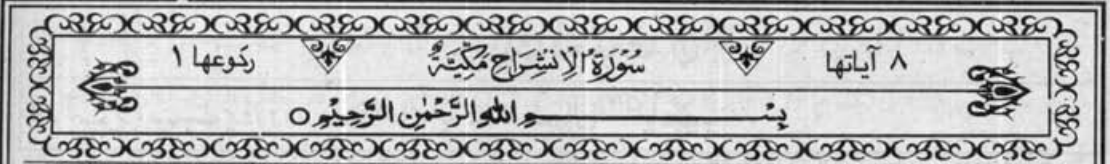 ٨ آیاتها سُوْرَةُ الْاِنْشِرَاحِ مَكِّيَّةٌ رکوعها ١
بِسْمِ اللهِ الرَّحْمٰنِ الرَّحِيْمِ ○